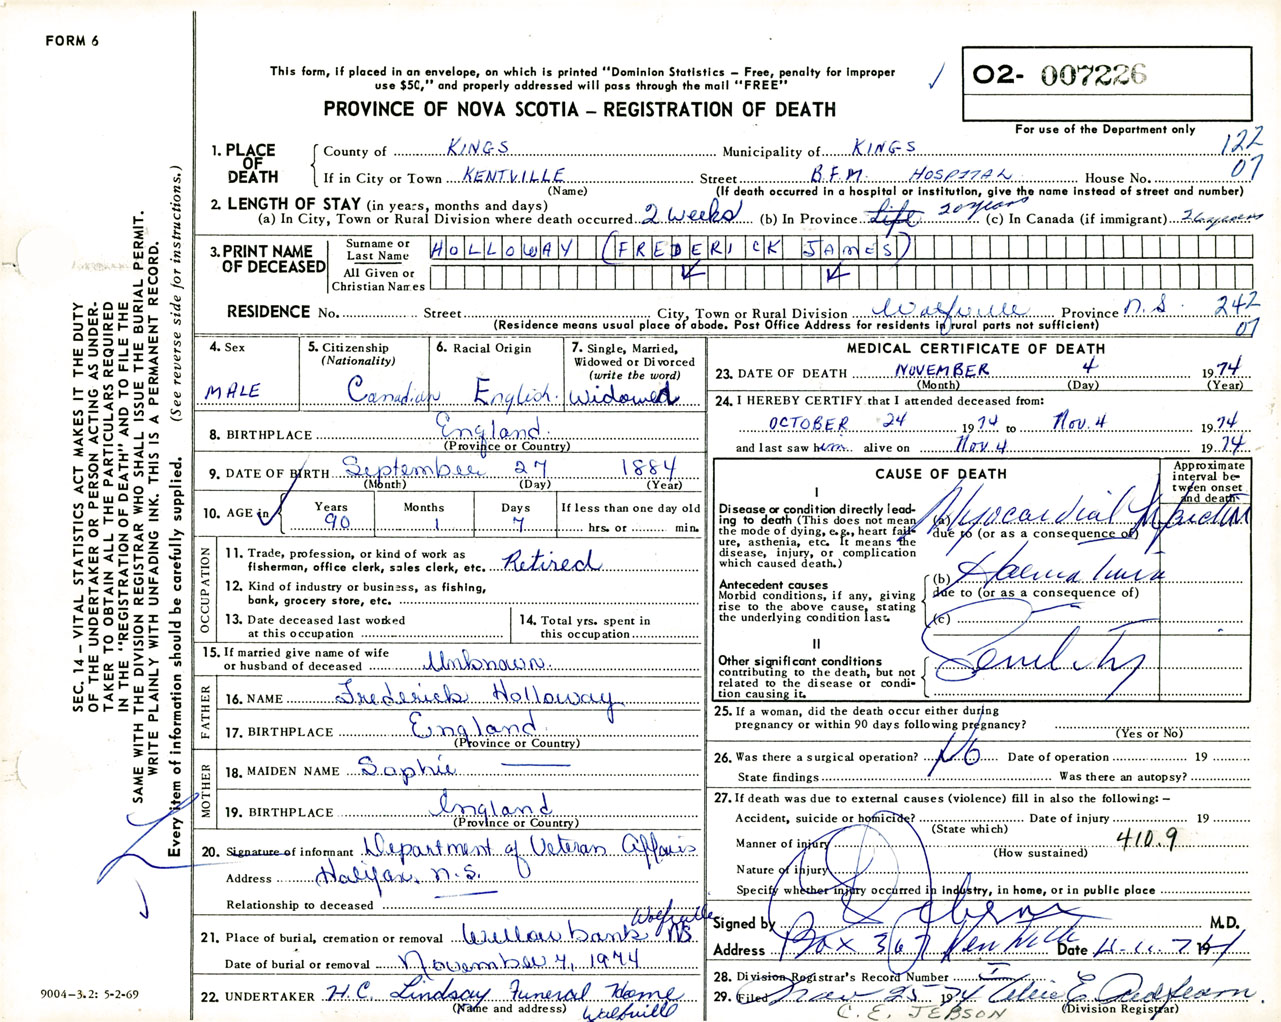 FORM 6
This form, if placed in an envelope, on which is printed "Dominion Statistics – Free, penalty for improper
use $50," and properly addressed will pass through the mail "FREE"
PROVINCE OF NOVA SCOTIA – REGISTRATION OF DEATH
O2- 007226
For use of the Department only
122
07
1. PLACE OF DEATH
County of KINGS Municipality of KINGS
If in City or Town KENTVILLE Street B.F.M. HOSPITAL House No.
(Name) (If death occurred in a hospital or institution, give the name instead of street and number)
2. LENGTH OF STAY (in years, months and days)
(a) In City, Town or Rural Division where death occurred 2 weeks (b) In Province Life 20 years (c) In Canada (if immigrant)
3. PRINT NAME OF DECEASED
Surname or Last Name HOLLOWAY (FREDERICK JAMES)
All Given or Christian Names
RESIDENCE No. Street City, Town or Rural Division Wolfville Province N.S. 242
(Residence means usual place of abode. Post Office Address for residents in rural parts not sufficient) 07
4. Sex
MALE
5. Citizenship
(Nationality)
Canadian
6. Racial Origin
English
7. Single, Married,
Widowed or Divorced
(write the word)
Widowed
8. BIRTHPLACE England
(Province or Country)
9. DATE OF BIRTH September 27 1884
(Month) (Day) (Year)
10. AGE in
Years Months Days If less than one day old
90 1 7 hrs. or min.
OCCUPATION
11. Trade, profession, or kind of work as
fisherman, office clerk, sales clerk, etc. Retired
12. Kind of industry or business, as fishing,
bank, grocery store, etc.
13. Date deceased last worked
at this occupation
14. Total yrs. spent in
this occupation
15. If married give name of wife
or husband of deceased Unknown
FATHER
16. NAME Frederick Holloway
17. BIRTHPLACE England
(Province or Country)
MOTHER
18. MAIDEN NAME Sophie
19. BIRTHPLACE England
(Province or Country)
20. Signature of informant Department of Veteran Affairs
Address Halifax, N.S.
Relationship to deceased
21. Place of burial, cremation or removal Willowbank Wolfville NS
Date of burial or removal November 7, 1974
22. UNDERTAKER H.C. Lindsay Funeral Home
(Name and address) Wolfville
MEDICAL CERTIFICATE OF DEATH
23. DATE OF DEATH NOVEMBER 4 1974
(Month) (Day) (Year)
24. I HEREBY CERTIFY that I attended deceased from:
OCTOBER 24 1974 to Nov. 4 1974
and last saw him alive on Nov. 4 1974
CAUSE OF DEATH
Approximate
interval be-
tween onset
and death
I
Disease or condition directly lead-
ing to death (This does not mean
the mode of dying, e.g., heart fail-
ure, asthenia, etc. It means the
disease, injury, or complication
which caused death.)
(a) Myocardial Infarction
due to (or as a consequence of)
Antecedent causes
Morbid conditions, if any, giving
rise to the above cause, stating
the underlying condition last.
(b) Haematuria
due to (or as a consequence of)
(c)
II
Other significant conditions
contributing to the death, but not
related to the disease or condi-
tion causing it.
Senility
25. If a woman, did the death occur either during
pregnancy or within 90 days following pregnancy?
(Yes or No)
26. Was there a surgical operation? No Date of operation 19
State findings Was there an autopsy?
27. If death was due to external causes (violence) fill in also the following: –
Accident, suicide or homicide? Date of injury 19
(State which)
Manner of injury 410.9
(How sustained)
Nature of injury
Specify whether injury occurred in industry, in home, or in public place
Signed by M.D.
Address Box 367 Kentville Date 19
28. Division Registrar's Record Number
29. Filed Nov 25 1974
C. E. JEBSON (Division Registrar)
SEC. 14 – VITAL STATISTICS ACT MAKES IT THE DUTY
OF THE UNDERTAKER OR PERSON ACTING AS UNDER-
TAKER TO OBTAIN ALL THE PARTICULARS REQUIRED
IN THE "REGISTRATION OF DEATH" AND TO FILE THE
SAME WITH THE DIVISION REGISTRAR WHO SHALL ISSUE THE BURIAL PERMIT.
WRITE PLAINLY WITH UNFADING INK. THIS IS A PERMANENT RECORD.
Every item of information should be carefully supplied. (See reverse side for instructions.)
9004-3.2: 5-2-69